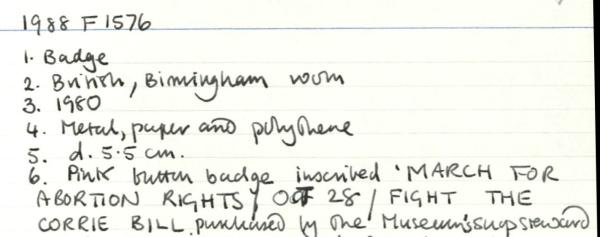 1988 F 1576
1. Badge
2. British, Birmingham room
3. 1980
4. Metal, paper and polythene
5. d. 5.5 cm.
6. Pink button badge inscribed 'MARCH FOR
ABORTION RIGHTS / OCT 28 / FIGHT THE
CORRIE BILL purchased by the Museum's